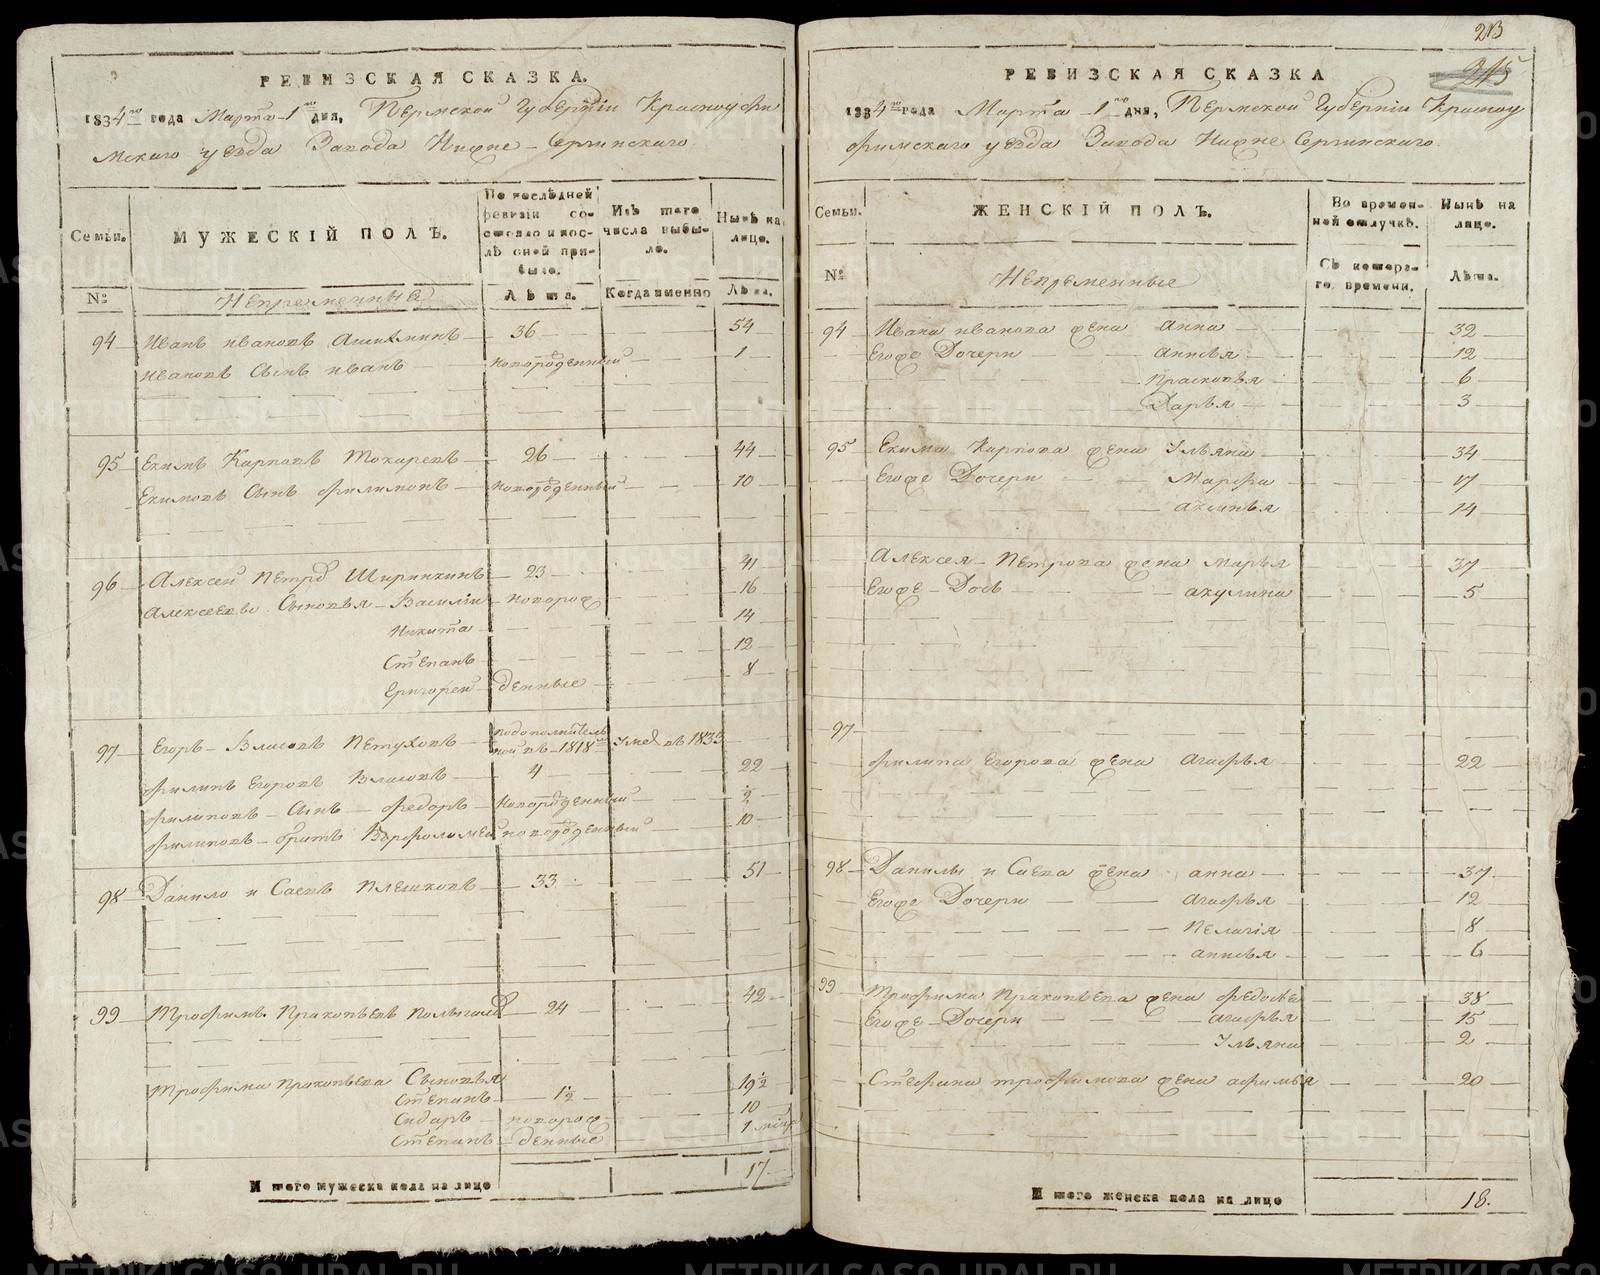 РЕВИЗСКАЯ СКАЗКА.
1834го года Марта 1го дня, Пермской Губерніи Красноуфи
мскаго уезда Завода Нижне-Сергинскаго
Семьи.
МУЖЕСКІЙ ПОЛЪ.
По послѣдней ревизіи состояло и послѣ оной прибыло.
Изъ того числа выбыло.
Нынѣ на лицо.
№
Непременные
Лѣта.
Когда именно
Лѣта.
94 Иванъ Ивановъ 36 54
Ивановъ Сынъ Иванъ новорожденный 1
95 Екимъ Карповъ Токаревъ 26 44
Екимовъ Сынъ Филимонъ новорожденный 10
96 Алексей Петровъ Ширинкинъ 23 41
Алексеевы Сыновья Василий новорож 16
Никита 14
Степанъ 12
Григорей денные 8
97 Егоръ Власовъ Петуховъ подополнительной въ 1818 Умер въ 1833
Филипъ Егоровъ Власовъ 4 22
Филиповъ Сынъ Федоръ новорожденный 1/2
Филиповъ братъ Варфоломей новорожденный 10
98 Данило и Савъ Плешковъ 33 51
99 Трофимъ Пракопьевъ 24 42
Трофима Пракопьева Сыновья
Степанъ 1 1/2 19 1/2
Сидаръ новорож 10
Степанъ денные 1
Итого мужеска пола на лицо 17
213
215
РЕВИЗСКАЯ СКАЗКА
1834го года Марта 1го дня, Пермской Губерніи Красноу
фимскаго уезда Завода Нижне Сергинскаго.
Семьи.
ЖЕНСКІЙ ПОЛЪ.
Во временной отлучкѣ.
Нынѣ на лицо.
№
Непременные
Съ котораго времени.
Лѣта.
94 Ивана Иванова жена Анна 32
Егоже Дочери Анисья 12
Прасковья 6
Дарья 3
95 Екима Карпова жена Ульяна 34
Егоже Дочери Марфа 17
Аксинья 14
Алексея Петрова жена Марья 37
Егоже Дочь Акулина 5
97
Филипа Егорова жена Агафья 22
98 Данилы и Савва жена Анна 37
Егоже Дочери Агафья 12
Пелагія 8
Анисья 6
99 Трофима Пракопьева жена Федосья 38
Егоже Дочери Агафья 15
Ульяна 2
Стефана Трофимова жена Афимья 20
Итого женска пола на лицо 18.
METRIKI.GASO-URAL.RU